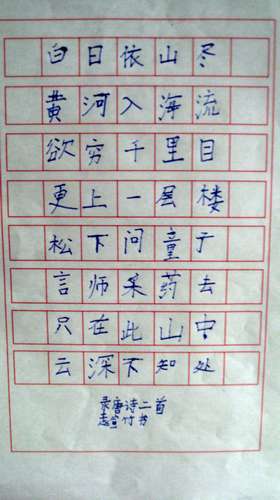 白日依山尽
黄河入海流
欲穷千里目
更上一层楼
松下问童子
言师采药去
只在此山中
云深不知处
录唐诗二首
志宣竹书